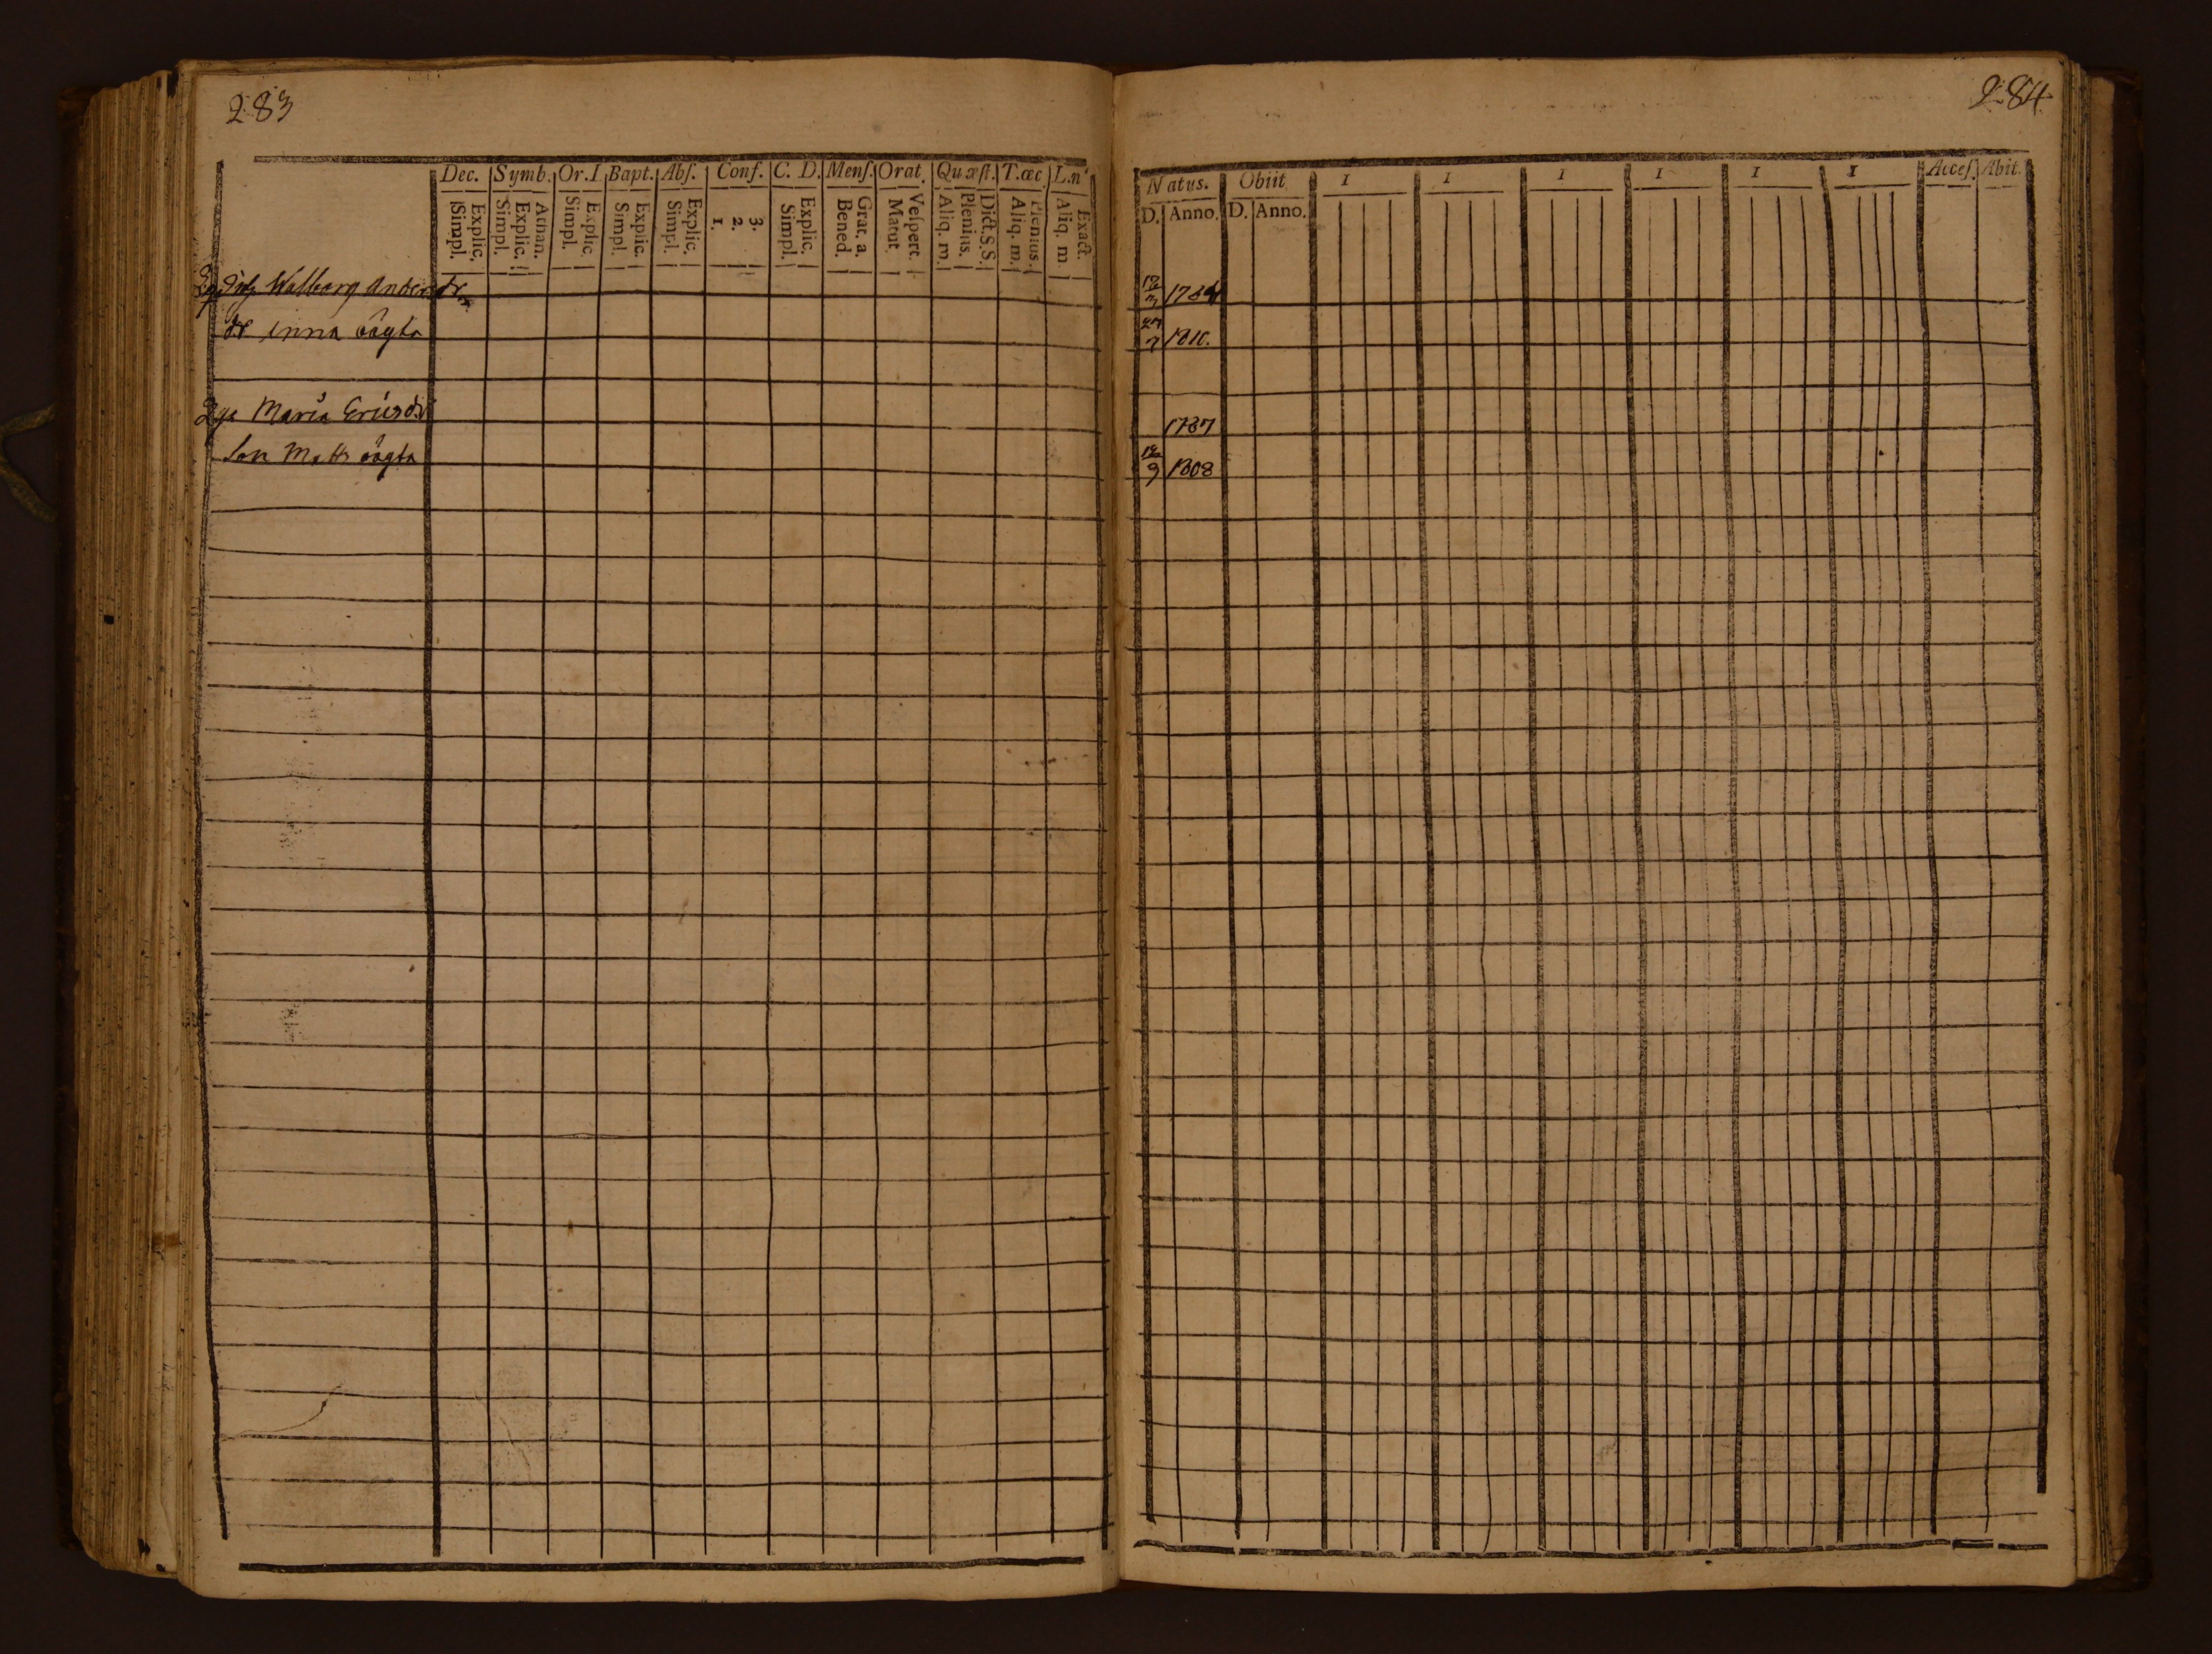 283
Dec. Symb. Or. I Bapt. Abſ. Conf. C. D. Menſ. Orat. Quæſt. T.œc. L.n
Explic. Simpl. Athan. Explic. Simpl. Explic. Simpl. Explic. Simpl. Explic. Simpl. 3. 2. 1. Explic. Simpl. Grat. a. Bened. Veſpert. Matut. Dict. S. S. Plenius. Aliq. m. Plenius. Aliq. m. Exact. Aliq. m.
Walborg Anders dr.
dr Anna oägta
Maria Ericsdr
Son Matts oägta
284
Natus. Obiit I I I I I I Acceſ. Abit.
D. Anno. D. Anno.
1784
27/7 1810.
1787
9 1808